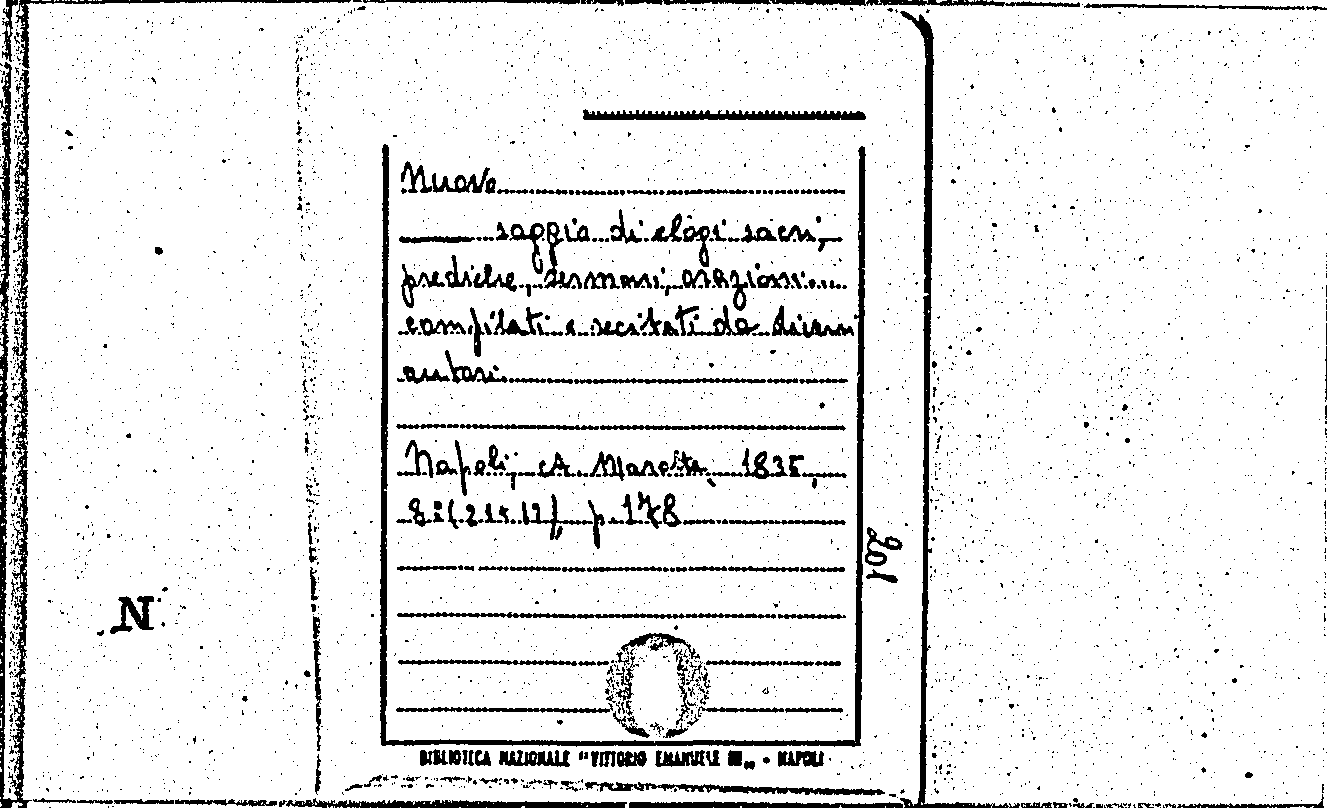 Nuovo
saggio di elogi sacri,
prediche, sermoni, orazioni...
compilati e recitati da diversi
autori.
Napoli, A. Marotta, 1835,
8:(21x12), p. 178
201
N
BIBLIOTECA NAZIONALE "VITTORIO EMANUELE III„ - NAPOLI